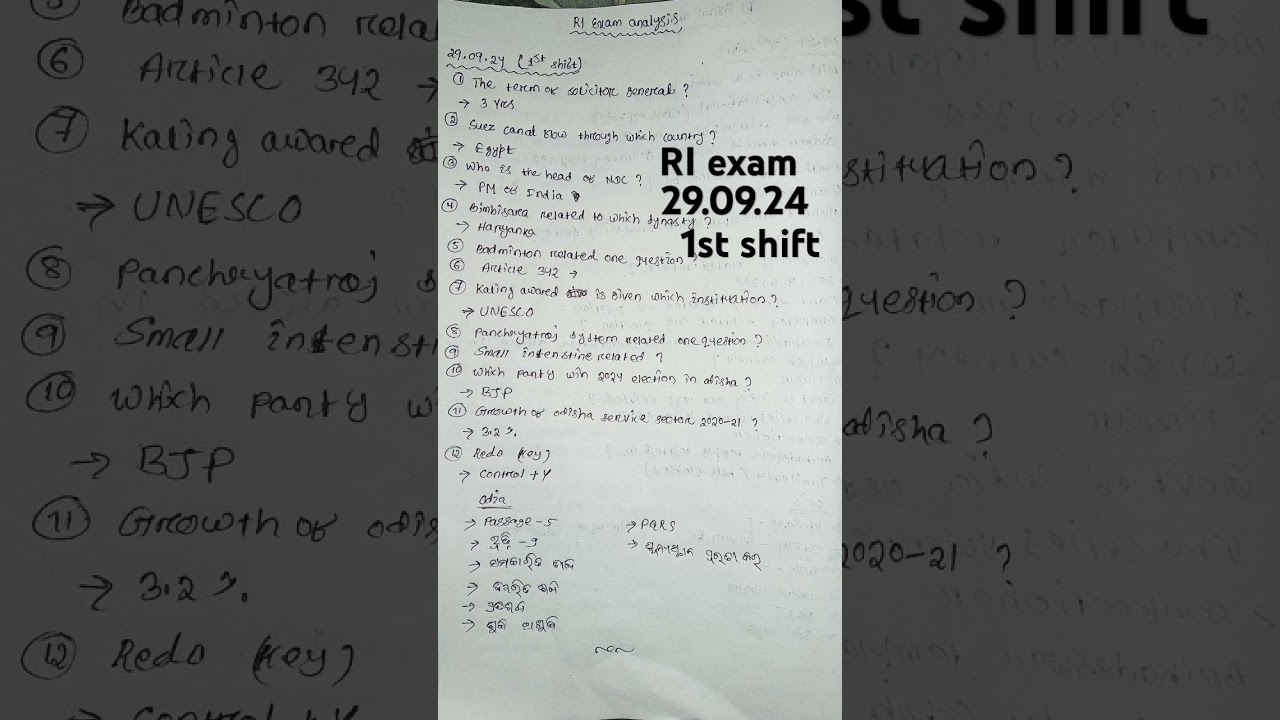 RI Exam analysis
29.09.24 (1st shift)
① The term of solicitor general ?
→ 3 Yrs
② Suez canal flow through which country ?
→ Egypt
③ Who is the head of NDC ?
→ PM of India
④ Bimbisara related to which dynasty ?
→ Haryanka
⑤ Badminton related one question ?
⑥ Article 342 →
⑦ Kaling awared is given which instituation ?
→ UNESCO
⑧ panchayatraj system related one question ?
⑨ Small intenstine related ?
⑩ Which party win 2024 election in odisha ?
→ BJP
⑪ Growth of odisha service sector 2020-21 ?
→ 3.2 %.
⑫ Redo (key)
→ Control + Y
odia
→ Passage - 5
→ PQRS
RI exam
29.09.24
1st shift
st shift
Badminton rela
⑥ Article 342 →
⑦ Kaling awared
stituation ?
→ UNESCO
⑧ panchayatraj
question ?
⑨ Small intensti
⑩ Which party w
odisha ?
→ BJP
⑪ Growth of odis
2020-21 ?
→ 3.2 %.
⑫ Redo (key)
→ Control + Y